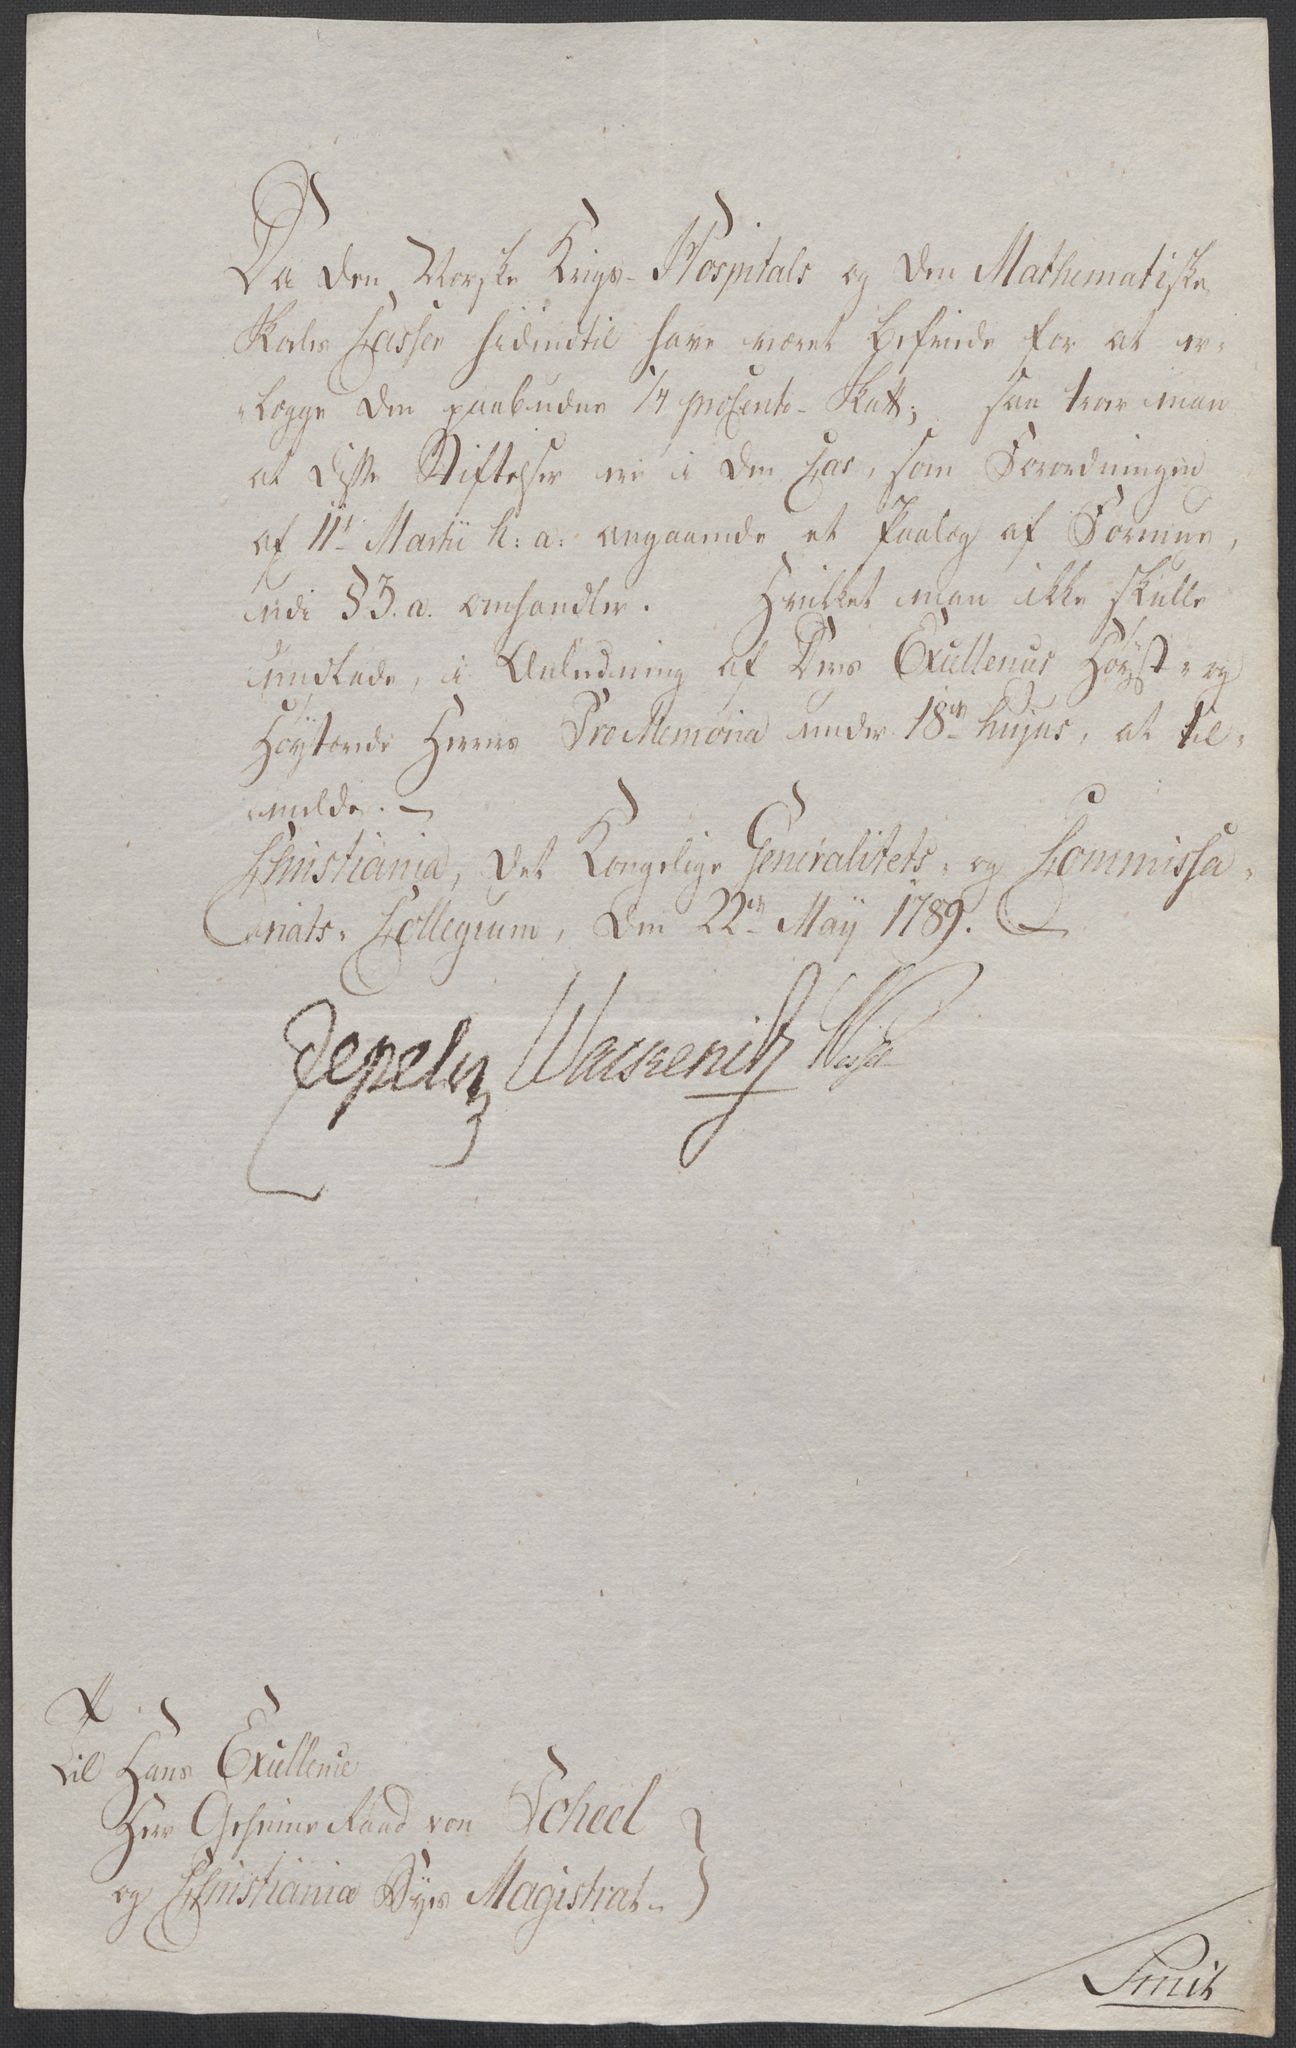 Da den Norske Krigs-Hospitals og den Mathematiske
Skoles Casser hidindtil have været befriede for at er-
-lægge den paabudne 1/4 proCento-Skatt; saa troer man
at disse Stiftelser ere i den Cas, som Forordningen
af 11te Martii h: a: angaaende et Paalæg af Formue,
udi § 3. a. omhandler. Hvilket man ikke skulle
undlade, i Anledning af Deres Excellences Høyst- og
Høytærede Herrers ProMemoria under 18de hujus, at til-
melde. —
Christiania, det Kongelige Generalitets- og Commissa-
riats-Collegium, den 22de Maÿ 1789.
Wackenitz
Til Hans Excellence
Herr Geheime Raad von Scheel
og Christianiæ Byes Magistrat-
Smit